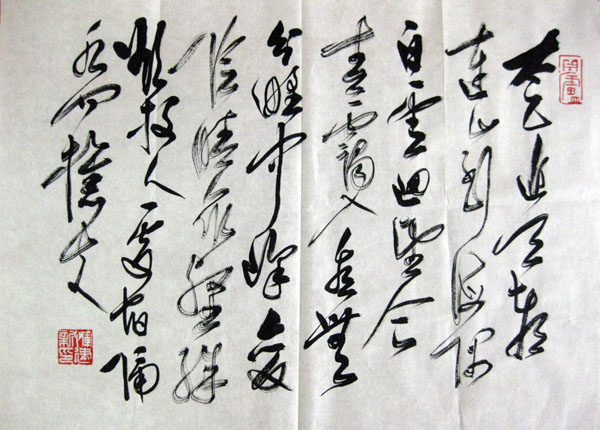 太乙近天都
連山到海隅
白雲迴望合
青靄入看無
分野中峰變
陰晴眾壑殊
欲投人處宿隔
水問樵夫